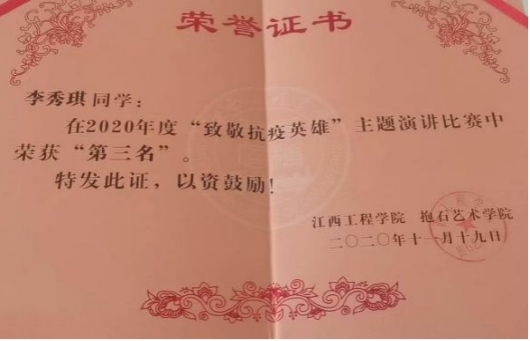 荣誉证书
李秀琪 同学：
在2020年度“致敬抗疫英雄”主题演讲比赛中
荣获“第三名”。
特发此证，以资鼓励！
江西工程学院 抱石艺术学院
二〇二〇年十一月十九日